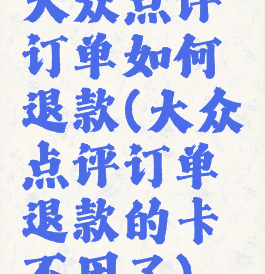 大众点评
订单如何
退款(大众
点评订单
退款的卡
不用了)